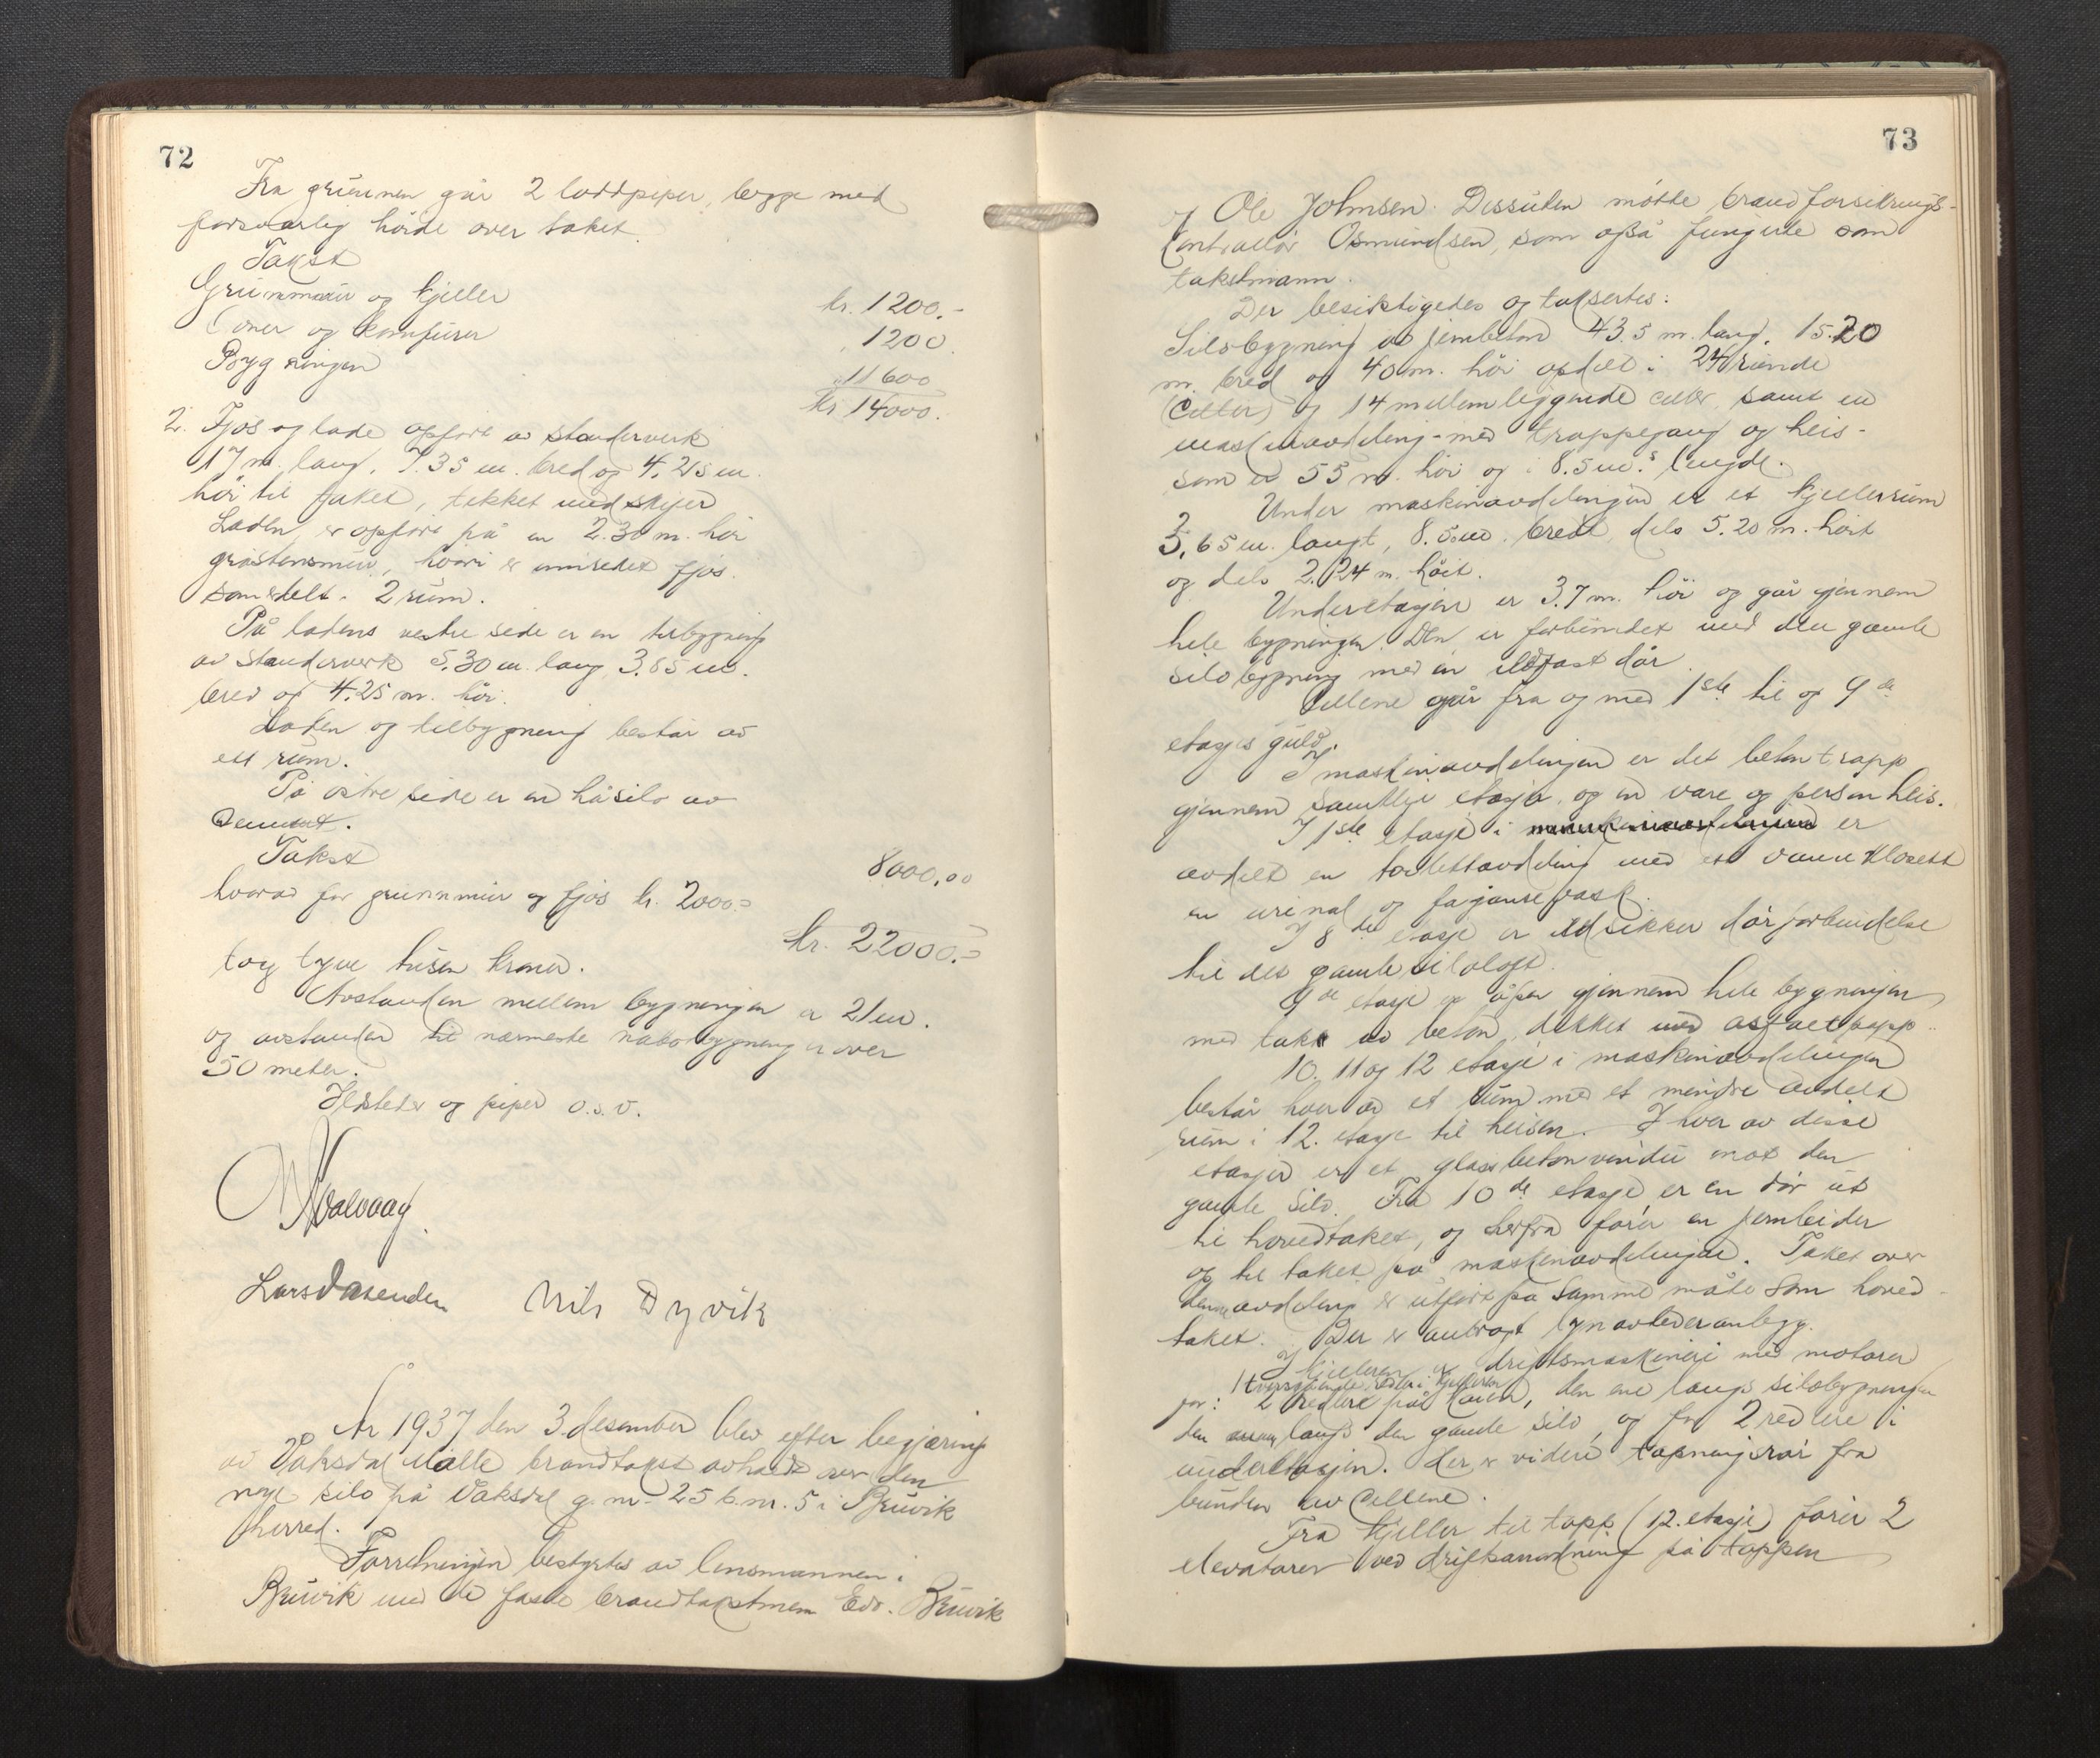 72
Fra grunnen går 2 loddpiper, begge med
forsvarlig höide over taket.
Takst
Grunnmur og kjeller kr. 1200.-
Ovner og komfurer 1200.
Bygningen 11600
kr 14000.
2. Fjös og lade opfört av standerverk
17 m. lang, 7.35 m. bred og 4.25 m.
höi til taket, tekket med skifer
Laden er opfört på en 2.30 m. höi
gråstensmur, hvori er innredet fjös.
som er delt i 2 rum.
På ladens vestre side er en tilbygning
av standerverk 5.30 m. lang, 3.65 m.
bred og 4.25 m. höi.
Laden og tilbygning består av
ett rum.
På östre side er en håsilo av
Sement.
Takst 8000,00
hvorav for grunnmur og fjös kr. 2000.-
kr. 22000.-
tog tyve tusen kroner.
Avstanden mellem bygningen er 21 m.
og avstanden til nærmeste nabobygning er over
50 meter.
Ildsteder og piper o.s.v.
Lars Dalseiden Nils Dyvik
År 1937 den 3. desember blev efter begjæring
av Vaksdal Mölle brandtakst avholdt over den
nye silo på Vaksdal g.nr. 25 b.nr. 5 i Bruvik
herred.
Forretningen bestyrtes av lensmannen i
Bruvik med de faste brandtakstmenn Edv. Bruvik
73
og Ole Johnsen. Dessuten mötte brandforsikrings-
kontrollör Osmundsen, som også fungerte som
takstmann.
Der besiktigedes og taksertes:
Silobygning av jernbeton 43.5 m. lang, 15.20
m. bred og 40 m. höi opdelt i 24 runde
(celler) og 14 mellemliggende celler, samt en
maskinavdeling - med trappegang og heis -
som er 55 m. höi og i 8.5 m.s lengde.
Under maskinavdelingen er et kjellerrum
5,65 m. langt, 8.5 m. bredt, dels 5.20 m. höit
og dels 2.24 m. höit.
Underetasjen er 3.7 m. höi og går gjennem
hele bygningen. Den er forbundet med den gamle
silobygning med en ildfast dör.
Cellene går fra og med 1ste til og 9de
etasjes gulv.
I maskinavdelingen er det betontrapp
gjennem samtlige etasjer, og en vare og personheis.
I 1ste etasje i er
avdelt en toilettavdeling med et vannklosett
en urinal og fajansevask.
I 8de etasje er ildsikker dörforbindelse
til det gamle siloloft.
9de etasje er åpen gjennem hele bygningen,
med takk av beton, dekket med asfaltpapp.
10. 11 og 12 etasje i maskinavdelingen
består hver av et rum med et mindre avdelt
rum i 12. etasje til heisen. I hver av disse
etasjer er et glassbetonvindu mot den
gamle silo. Fra 10de etasje er en dör ut
til hovedtaket, og herfra förer en jernleider
op til taket på maskinavdelingen. Taket over
denne avdeling er utfört på samme måte som hoved-
taket. Der er anbragt lynavlederanlegg.
I kjelleren er driftsmaskineri med motorer
1 tversgående redler i kjelleren
for: 2 redlere på kaien, den ene langs silobygningen
den annen langs den gamle silo, og for 2 redlere i
underetasjen. Der er videre tapningsrör fra
bunden av cellene.
Fra kjeller til topp (12. etasje) förer 2
elevatorer ved driftsanordning på toppen